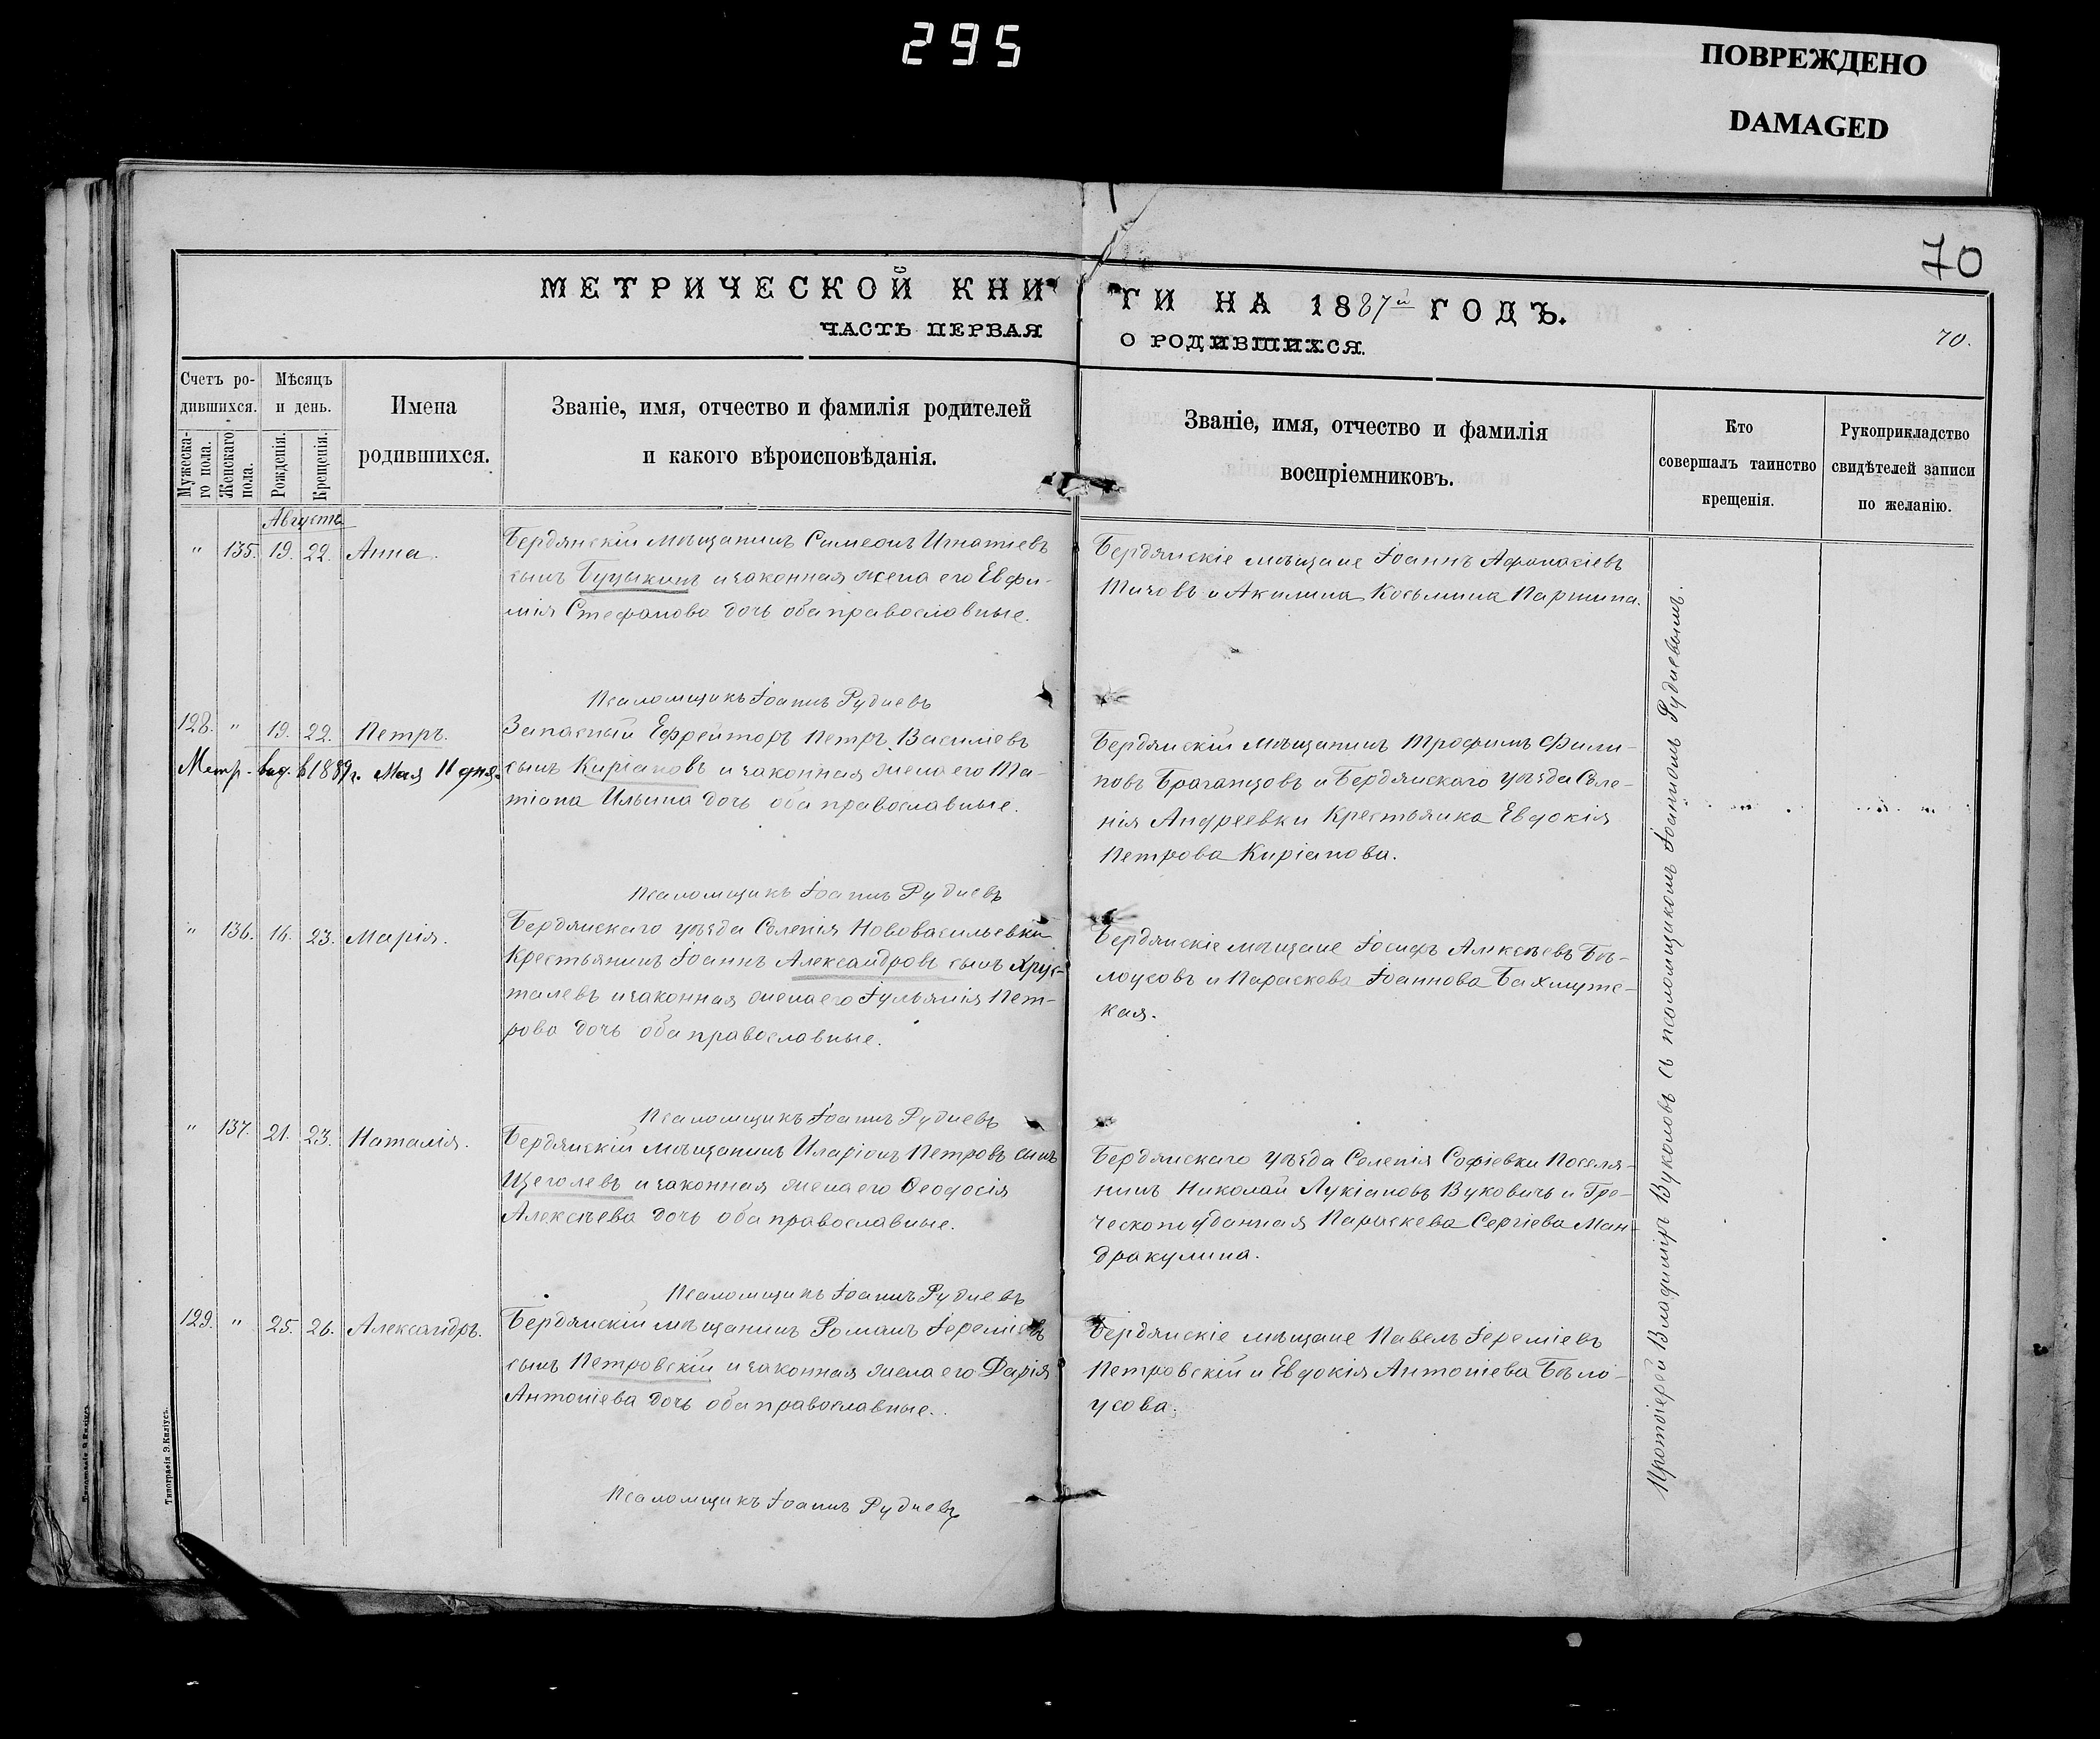 295
ПОВРЕЖДЕНО
DAMAGED
70
МЕТРИЧЕСКОЙ КНИГИ НА 1887й ГОДЪ.
ЧАСТЬ ПЕРВАЯ О РОДИВШИХСЯ.
70.
Счетъ ро-
дившихся.
Мужеска-
го пола.
Женскаго
пола.
Мѣсяцъ
и день.
Рожденія.
Крещенія.
Имена
родившихся.
Званіе, имя, отчество и фамилія родителей
и какого вѣроисповѣданія.
Званіе, имя, отчество и фамилія
воспріемниковъ.
Кто
совершалъ таинство
крещенія.
Рукоприкладство
свидѣтелей записи
по желанію.
Августъ
" 135. 19. 22. Анна.
Бердянскій мѣщанинъ Симеонъ Игнатіевъ
сынъ Буцыкинъ и законная жена его Евфи-
мія Стефанова дочь оба православные.
Бердянскіе мѣщане Іоаннъ Афанасіевъ
Титовъ и Акилина Косьмина Паршина.
Псаломщикъ Іоаннъ Рудневъ
128. " 19. 22. Петръ.
Метр. выд. в 1889г. Мая 11 дня.
Запасный Ефрейторъ Петръ Василіевъ
сынъ Киріановъ и законная жена его Та-
тіана Ильина дочь оба православные.
Бердянскій мѣщанинъ Трофимъ Фили-
повъ Браганцовъ и Бердянскаго уѣзда Селе-
нія Андреевки Крестьянка Евдокія
Петрова Киріанова.
Псаломщикъ Іоаннъ Рудневъ
" 136. 14. 23. Марія.
Бердянскаго уѣзда Селенія Нововасильевки
Крестьянинъ Іоаннъ Александровъ сынъ Хрус-
талевъ и законная жена его Іульянія Пет-
рова дочь оба православные.
Бердянскіе мѣщане Іосифъ Алексѣевъ Бѣ-
лоусовъ и Параскева Іоаннова Бахмутс-
кая.
Псаломщикъ Іоаннъ Рудневъ
" 137. 21. 23. Наталія.
Бердянскій мѣщанинъ Иларіонъ Петровъ сынъ
Щеголевъ и законная жена его Ѳеодосія
Алексѣева дочь оба православные.
Бердянскаго уѣзда Селенія Софіевки Поселя-
нинъ Николай Лукіановъ Вуковичъ и Гре-
ческоподданная Параскева Сергіева Ман-
дракулина.
Псаломщикъ Іоаннъ Рудневъ
129. " 25. 26. Александръ.
Бердянскій мѣщанинъ Романъ Іереміевъ
сынъ Петровскій и законная жена его Дарія
Антоніева дочь оба православные.
Бердянскіе мѣщане Павелъ Іереміевъ
Петровскій и Евдокія Антоніева Бѣло-
усова.
Псаломщикъ Іоаннъ Рудневъ
Протоіерей Владиміръ Вуколовъ съ псаломщикомъ Іоанномъ Рудневымъ.
Типографія Э.Киліусъ.